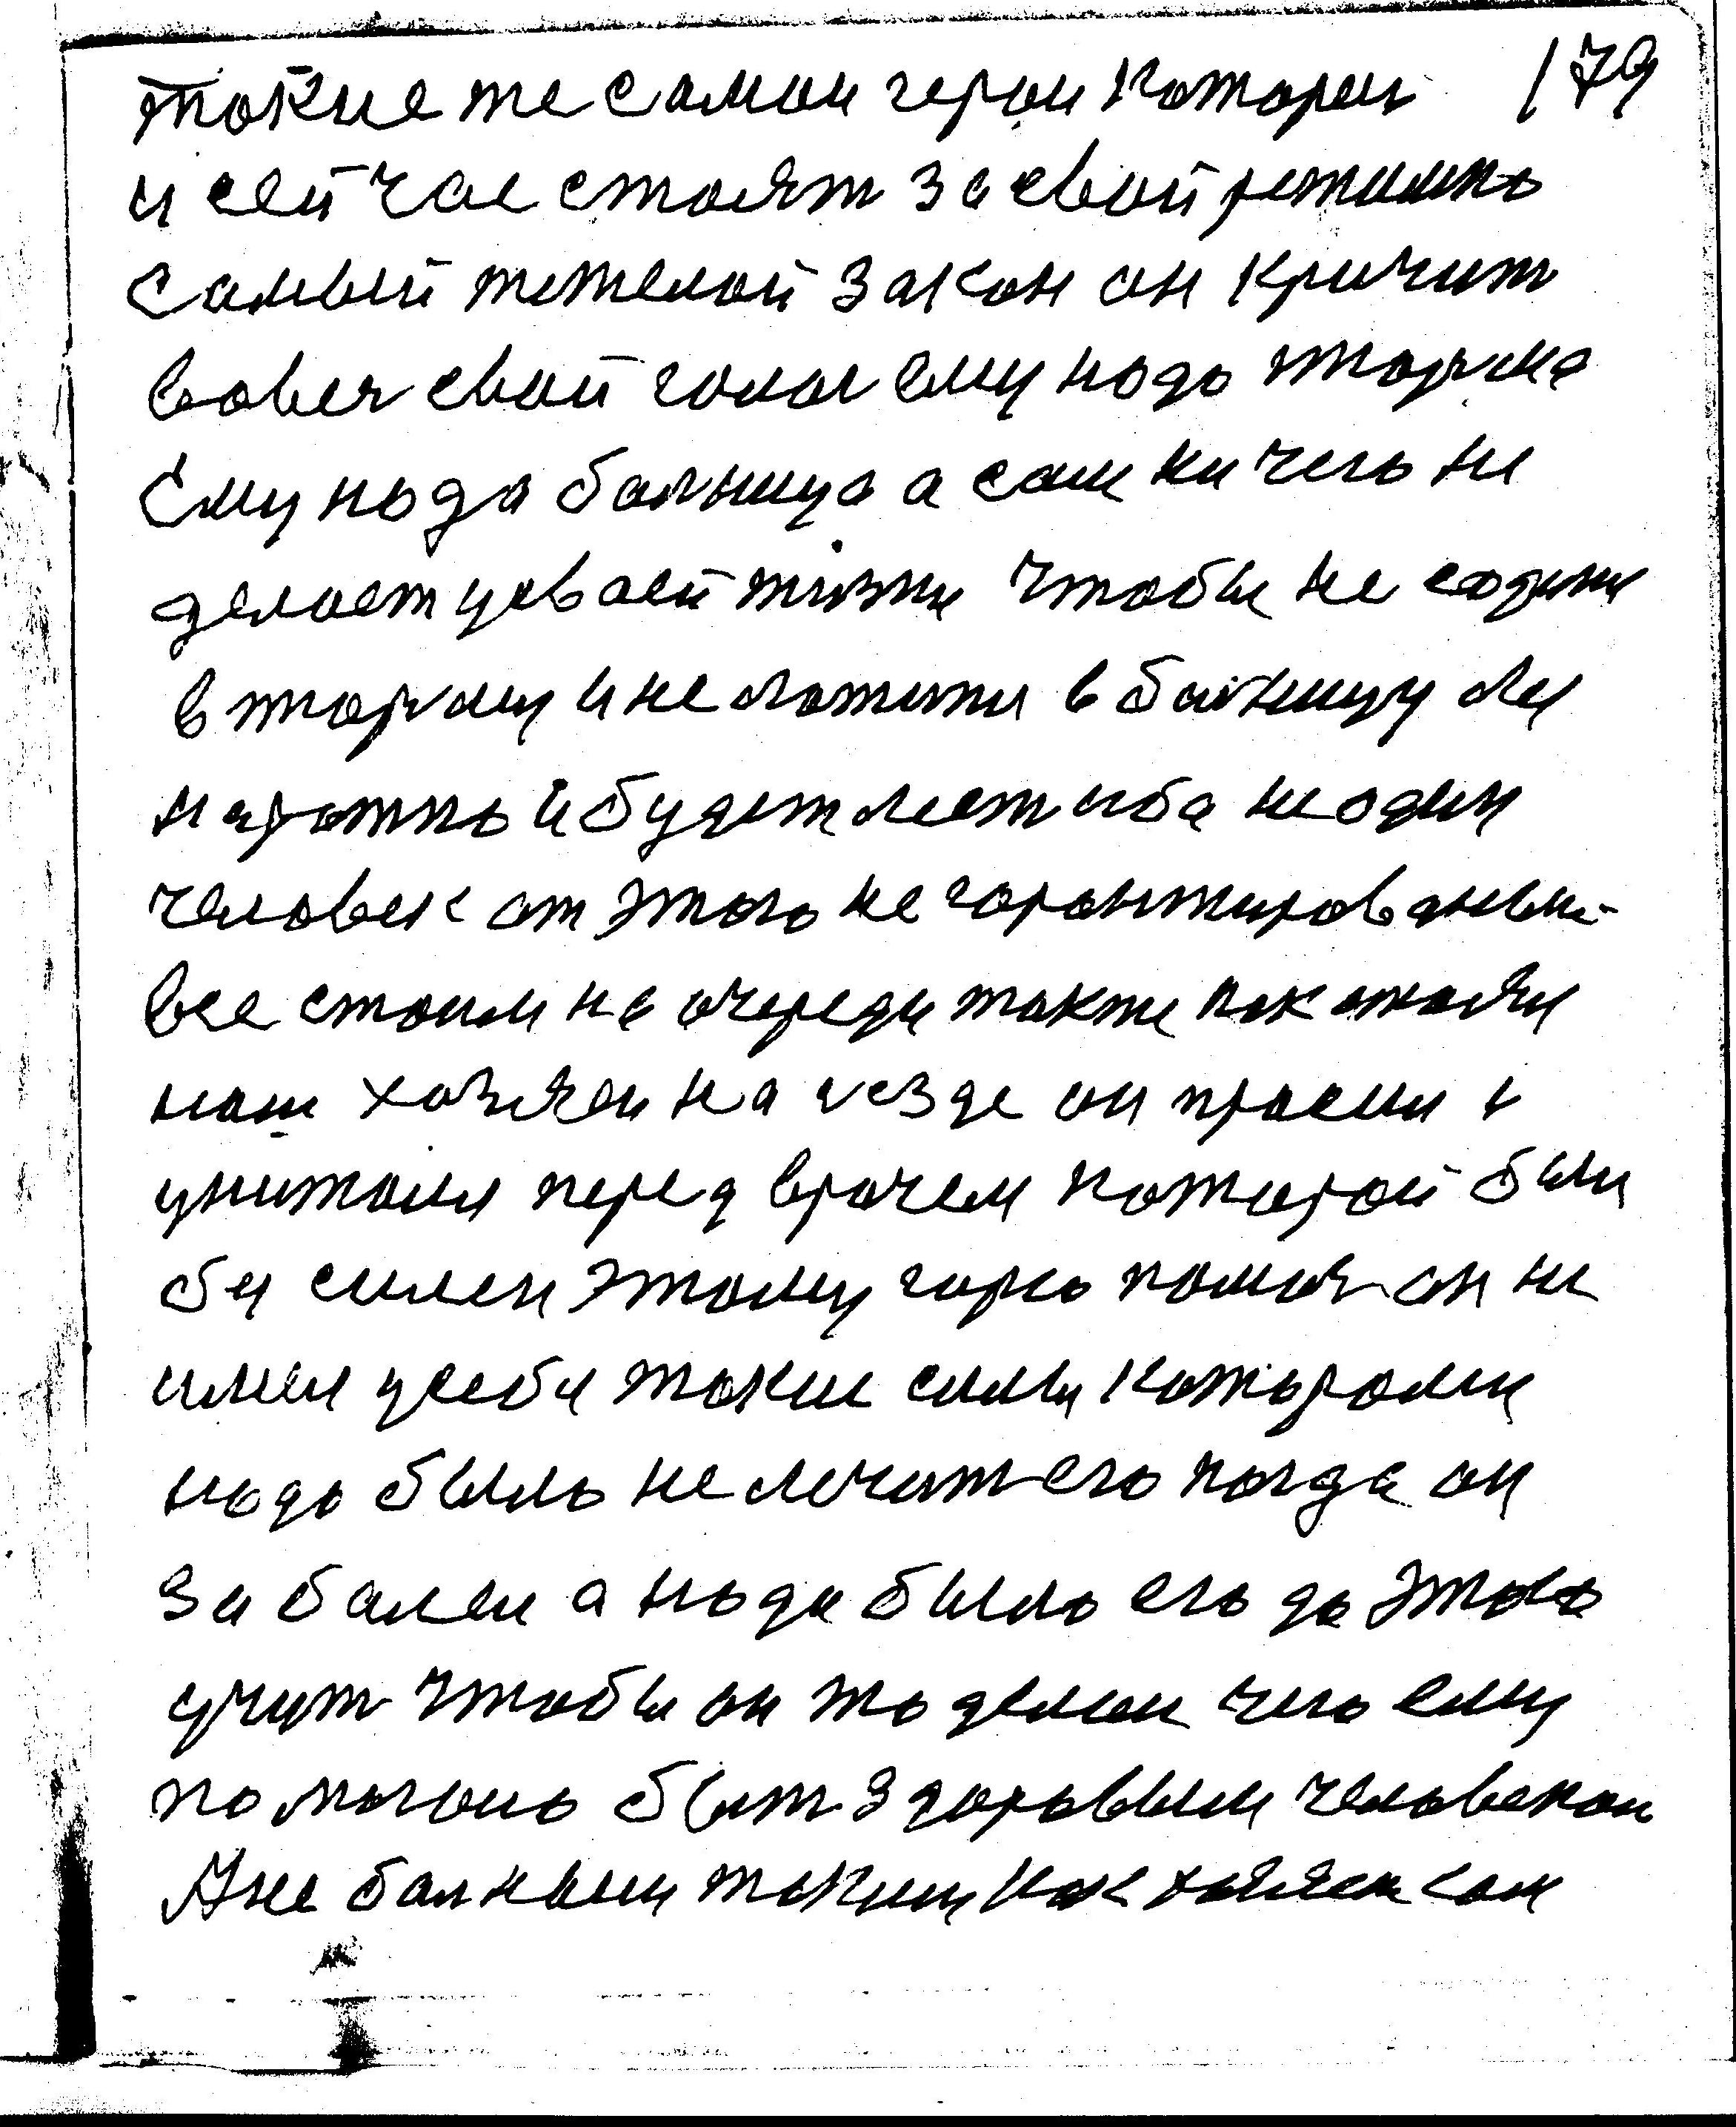 такие же самои герои которы 179
и сейчас стоят за свой режимъ
самый тежелой закон он кричит
вовсч свой голос ему надо тюрма
ему нада больница а сам ничего ни
делает усваей жизни чтобы не содит
в тюрму и не ложит в больницу
и будет ибо не один
человек от этого не горонтированы
все стоим на очереди также как стояли
наш хозяен на он просил и
унижался перед врачем которой был
бы силен этому горю помоч он ни
имел усебя такие силы которами
надо было не лечит его когда он
заболел а нада было его до этого
учит чтобы он то делал чего ему
помоголо быт здоровым человеком
А не больным таким как хозяен сам